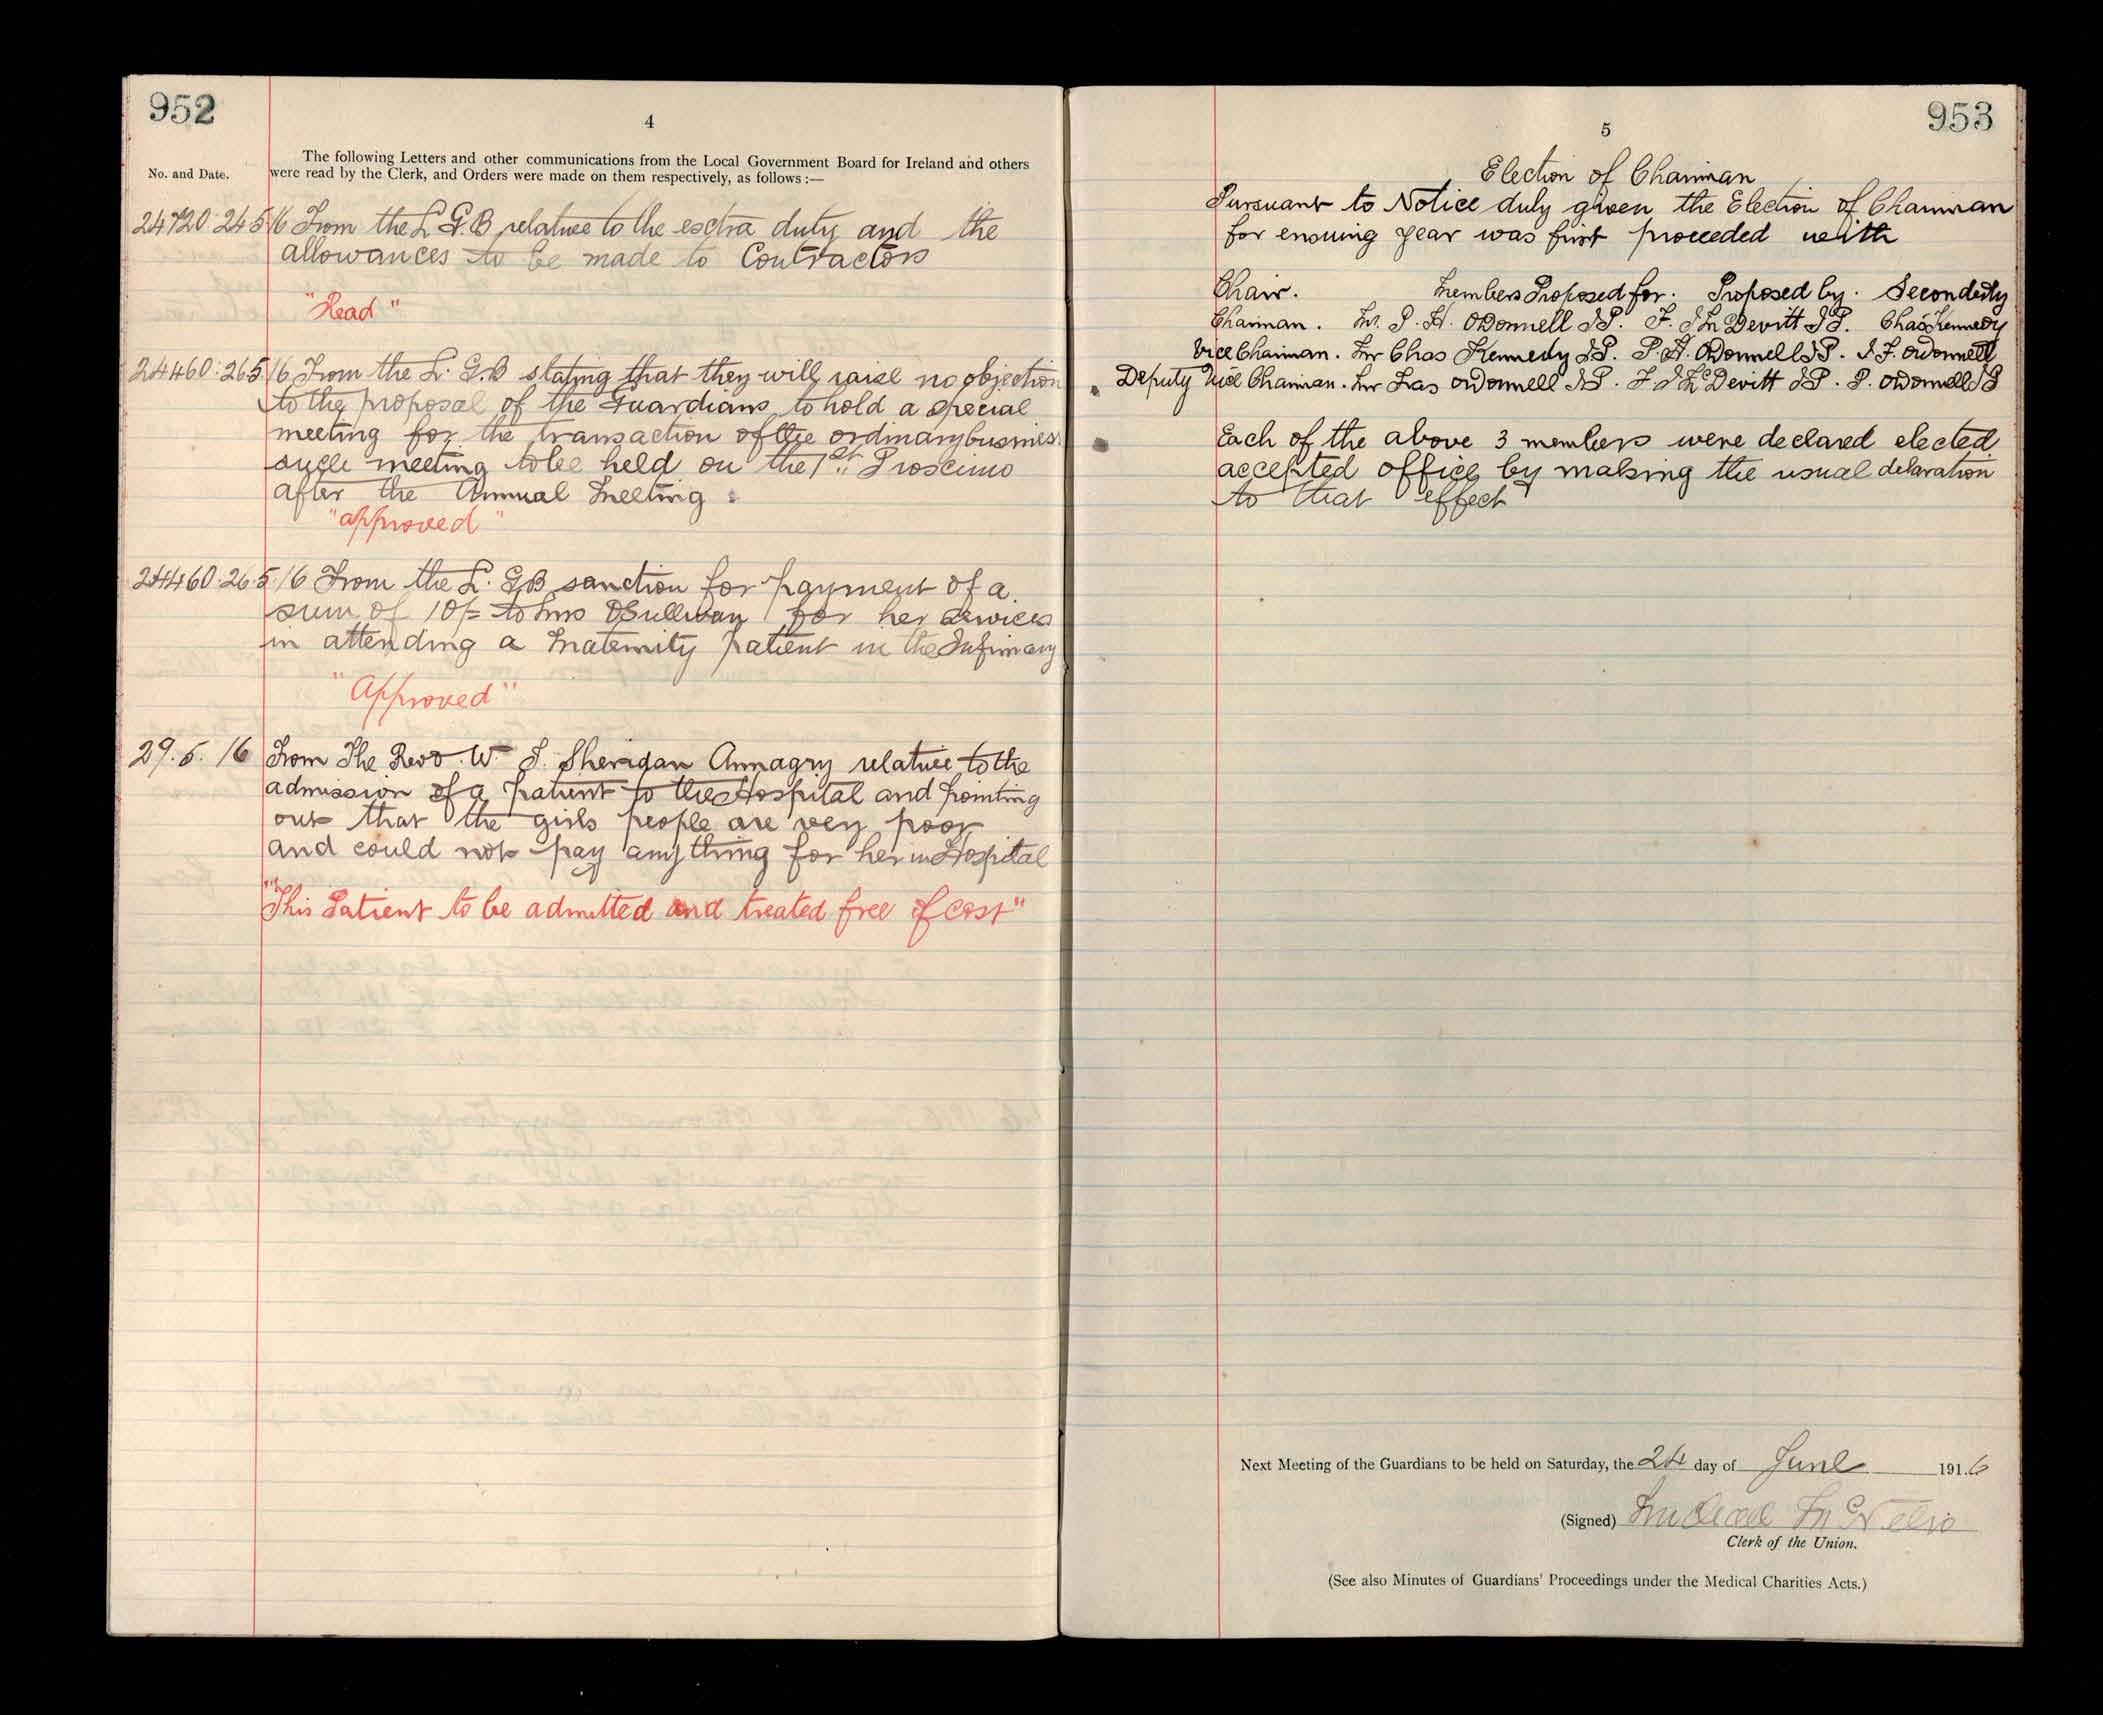 952
4
No. and Date.
The following Letters and other communications from the Local Government Board for Ireland and others
were read by the Clerk, and Orders were made on them respectively, as follows :—
24720. 24.5.16 From the L. G. B relative to the extra duty and the
allowances to be made to Contractors
"Read"
24460. 26.5.16 From the L. G. B stating that they will raise no objection
to the proposal of the Guardians to hold a special
meeting for the transaction of the ordinary business
such meeting to be held on the 1st Proscimo
after the Annual Meeting.
"approved"
24460. 26.5.16 From the L. G B sanction for payment of a
sum of 10/= to Mrs O'Sullivan for her services
in attending a Maternity patient in the Infirmary
"Approved"
29.5.16 From The Revd. Wm J. Sheridan Annagry relative to the
admission of a patient to the Hospital and pointing
out that the girls people are very poor
and could not pay anything for her in Hospital
"This Patient to be admitted and treated free of cost"
953
5
Election of Chairman
Pursuant to Notice duly given the Election of Chairman
for ensuing year was first proceeded with
Chair. Members Proposed for. Proposed by. Seconded by
Chairman. Mr. P. H. ODonnell J.P. F. J McDevitt J P. Chas Kennedy
Vice Chairman. Mr Chas Kennedy J.P. P. H. ODonnell J P. J. F. ODonnell
Deputy Vice Chairman. Mr Jas ODonnell J.P. F. J McDevitt J P. P. ODonnell J P
Each of the above 3 members were declared elected
accepted office by making the usual delaration
to that effect
Next Meeting of the Guardians to be held on Saturday, the 24 day of June 1916
(Signed)
Clerk of the Union.
(See also Minutes of Guardians' Proceedings under the Medical Charities Acts.)